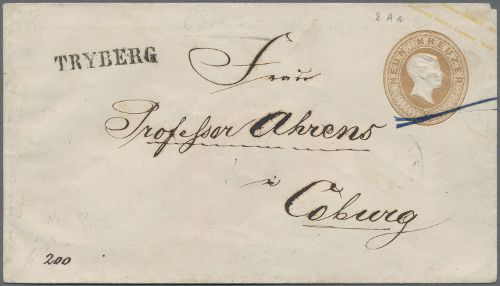 8 A a
NEUN KREUZER
TRYBERG
Frau
Professor Ahrens
i
Coburg
200